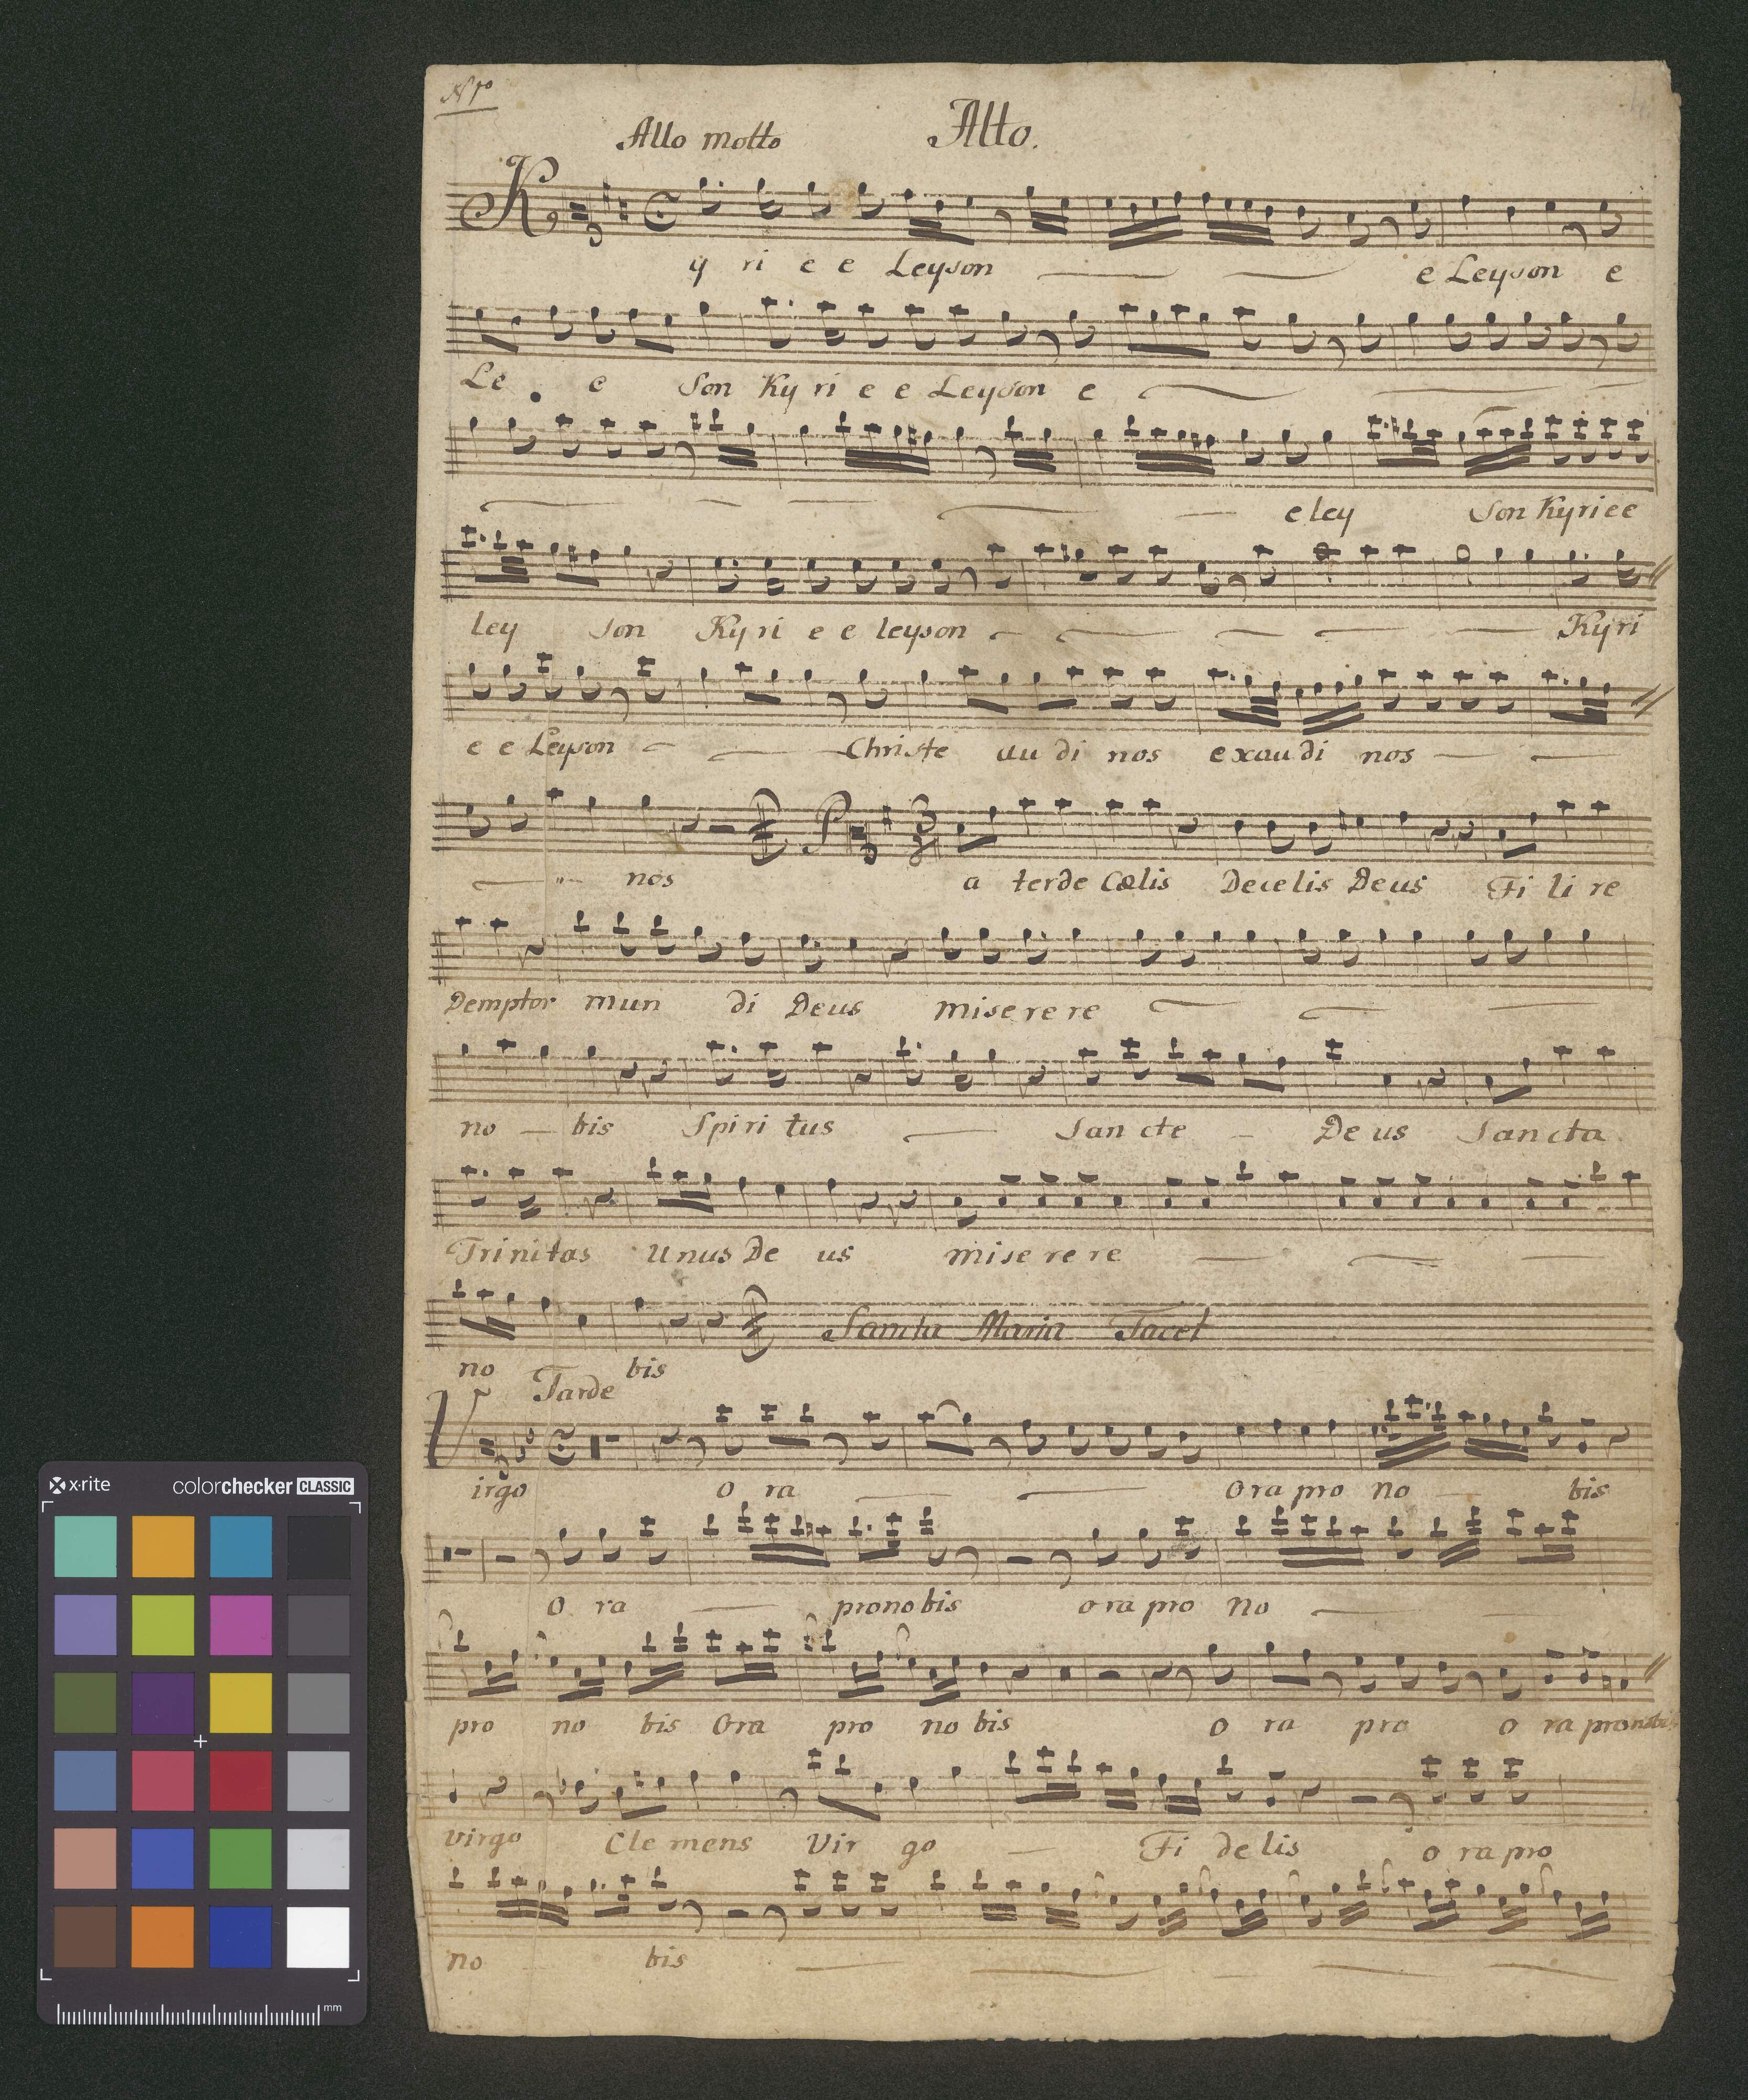 No 1o
Allo molto Alto.
K
y ri e e Leyson e Leyson e
Le e Son Ky ri e e Leyson e
e ley Son Kyri e e
ley son Ky ri e e leyson Kyri
e e Leyson Christe au di nos exaudi nos
P
nos a ter de Cælis De celis Deus Fi li re
Demptor mun di Deus mise re re
no bis Spi ri tus San cte De us Sancta
Trinitas Unus De us mise re re
Sancta Maria Tacet
no bis
Tarde
V
irgo o ra Ora pro no bis
o ra pro no bis o ra pro no
pro no bis Ora pro no bis o ra pro o ra pro nobis
virgo Cle mens Vir go Fi de lis o ra pro
no bis
x·rite colorchecker CLASSIC
mm